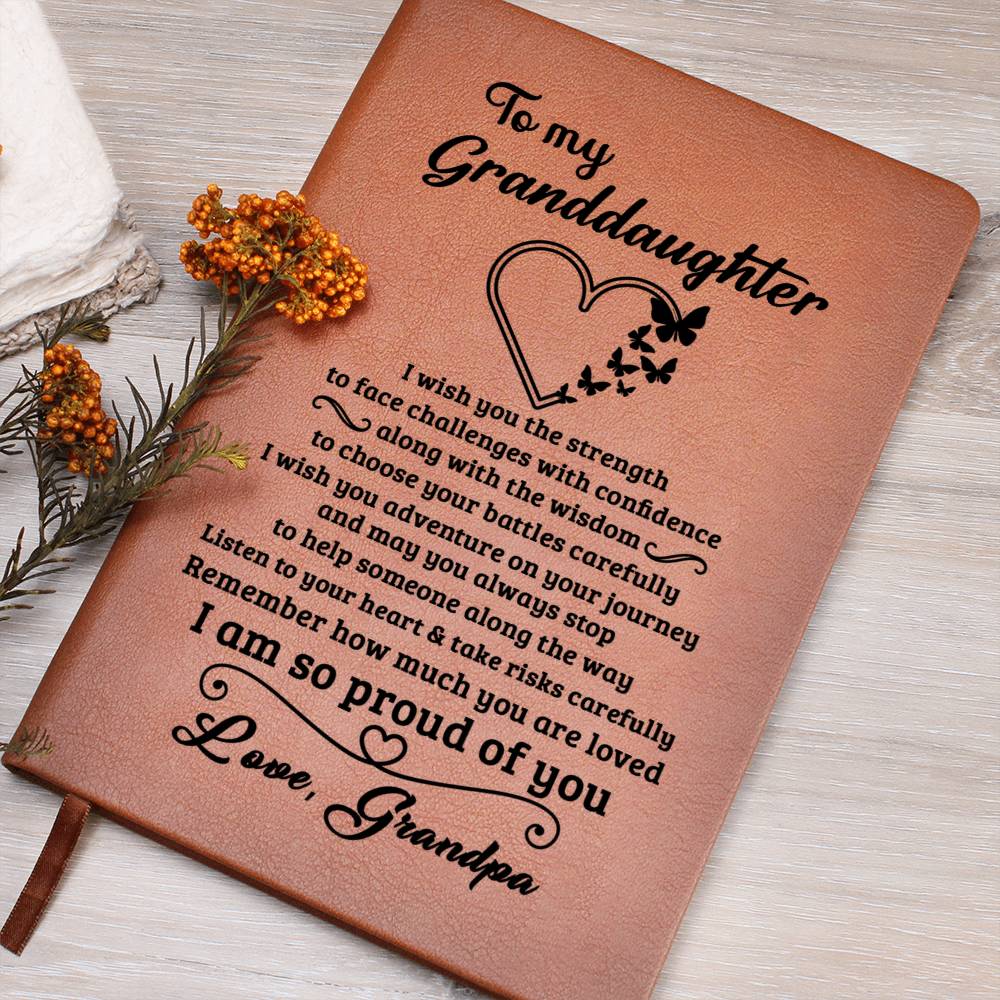 To my
Granddaughter
I wish you the strength
to face challenges with confidence
along with the wisdom
to choose your battles carefully
I wish you adventure on your journey
and may you always stop
to help someone along the way
Listen to your heart & take risks carefully
Remember how much you are loved
I am so proud of you
Love, Grandpa